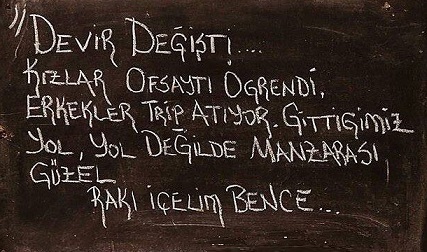 " DEVİR DEĞİŞTİ....
KIZLAR OFSAYTI ÖGRENDİ,
ERKEKLER TRİP ATIYOR. GİTTİGİMİZ
YOL, YOL DEĞİLDE MANZARASI
GÜZEL
RAKI İÇELİM BENCE...